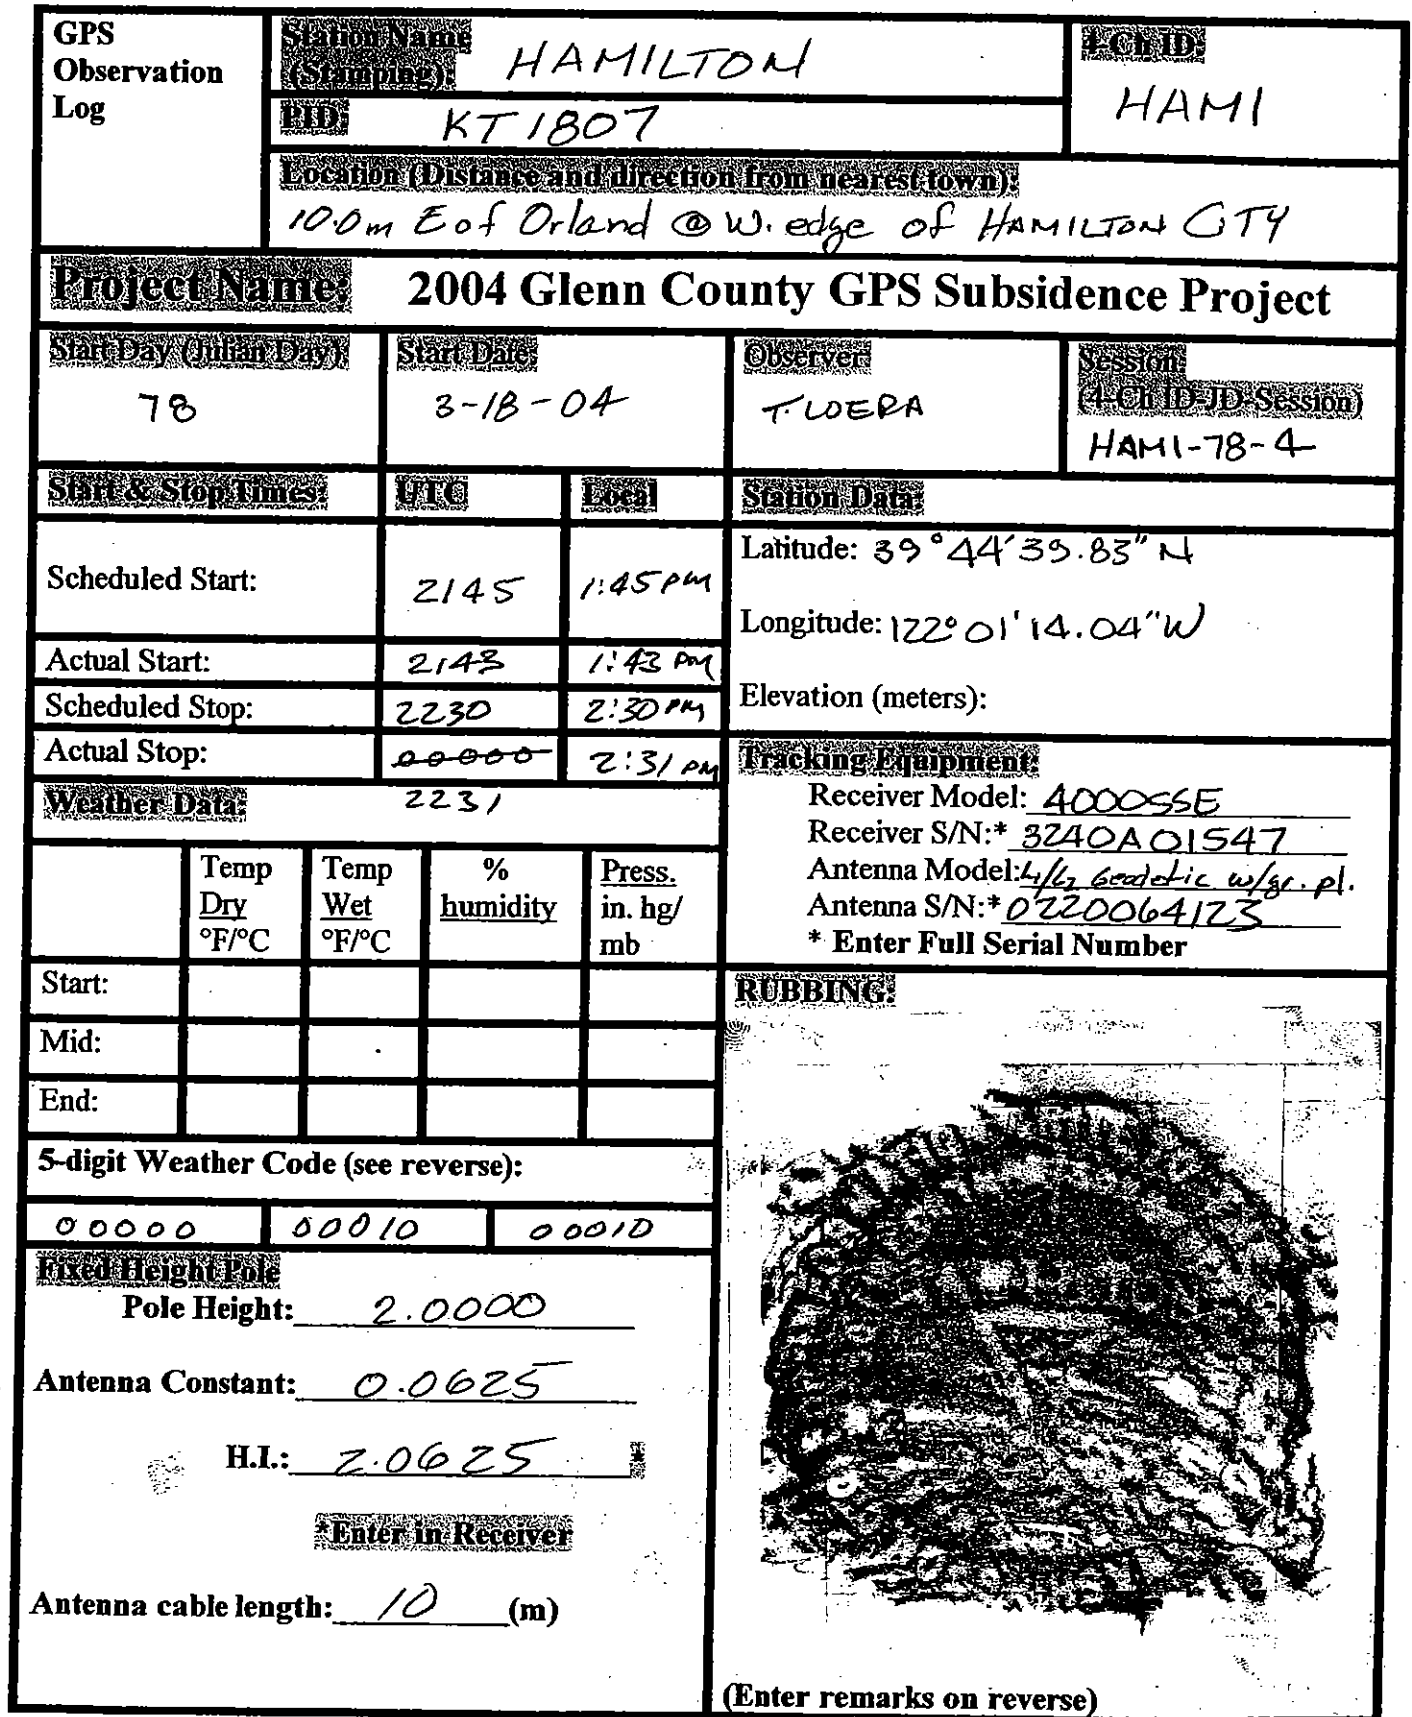 GPS
Observation
Log
Station Name
(Stamping): HAMILTON
4-Ch ID:
HAMI
PID: KT1807
Location (Distance and direction from nearest town):
10.0m E of Orland @ W. edge of HAMILTON CITY
Project Name: 2004 Glenn County GPS Subsidence Project
Start Day (Julian Day)
78
Start Date:
3-18-04
Observer
T. LOERA
Session:
(4-Ch ID-JD-Session)
HAMI-78-4
Start & Stop Times: UTC Local
Scheduled Start: 2145 1:45 PM
Actual Start: 2143 1:43 PM
Scheduled Stop: 2230 2:30 PM
Actual Stop: 00000 2:31 PM
2231
Station Data:
Latitude: 39°44'39.83" N
Longitude: 122°01'14.04"W
Elevation (meters):
Tracking Equipment:
Receiver Model: 4000SSE
Receiver S/N:* 3240A01547
Antenna Model: L1/L2 Geodetic w/gr. pl.
Antenna S/N:* 0220064123
* Enter Full Serial Number
Weather Data:
Temp
Dry
°F/°C
Temp
Wet
°F/°C
%
humidity
Press.
in. hg/
mb
Start:
Mid:
End:
5-digit Weather Code (see reverse):
00000 00010 00010
Fixed Height Pole
Pole Height: 2.0000
Antenna Constant: 0.0625
H.I.: 2.0625 *
*Enter in Receiver
Antenna cable length: 10 (m)
RUBBING:
(Enter remarks on reverse)